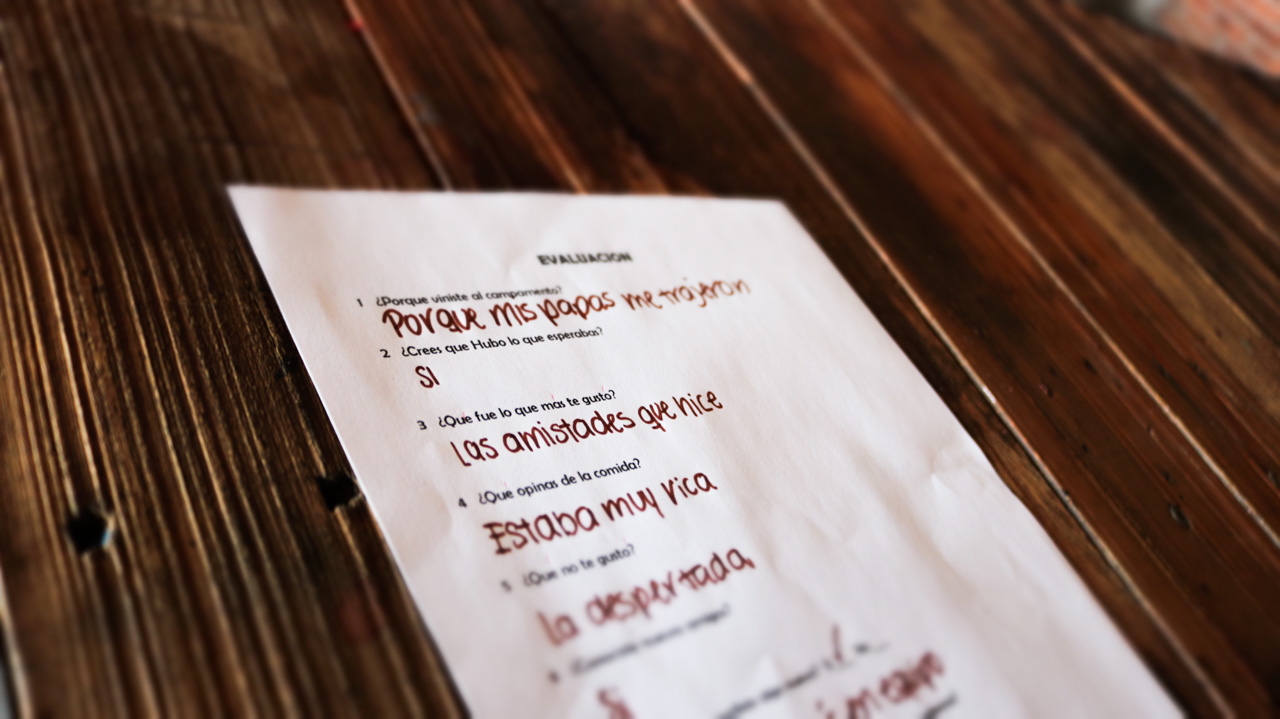 EVALUACION
1 ¿Porque viniste al campamento?
Porque mis papas me trajeron
2 ¿Crees que Hubo lo que esperabas?
SI
3 ¿Que fue lo que mas te gusto?
Las amistades que hice
4 ¿Que opinas de la comida?
Estaba muy rica
5 ¿Que no te gusto?
la despertada.
Si